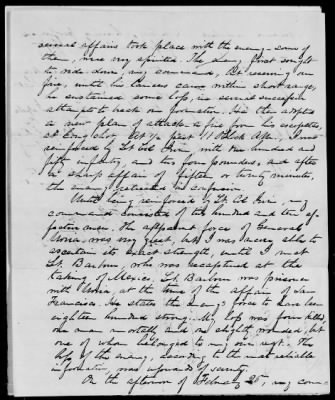 several affairs took place with the enemy - some of
them, were very spirited. The enemy, first sought
to ride down, my command, but reserving our
fire, until his Lancers came within short range,
he sustained some loss, in several successive
attempts to break our formation. He then adopted
a new plan of attack, a fire from his escopettes,
at long shot. At ½ past 11 O'Clock A.M., I was
reinforced by Lt Col Irvin with two hundred and
fifty infantry, and two four pounders, and after
a sharp affair of fifteen or twenty minutes,
the enemy retreated in confusion.
Until being reinforced by Lt Col Irvin, my
command consisted of two hundred and ten ef-
fective men. The apparent force of General
Urrea, was very great, but I was never able to
ascertain its exact strength, until I met
Lt. Barbour, who was recaptured at the
taking of Mexico. Lt. Barbour was prisoner
with Urrea, at the time of the affair of San
Francisco. He states the enemy's force to have been
eighteen hundred strong. My loss was four killed,
one man mortally and six slightly wounded, but
one of whom belonged to my own regt. The
loss of the enemy, according to the most reliable
information, was upwards of seventy.
On the afternoon of February 25, my com-